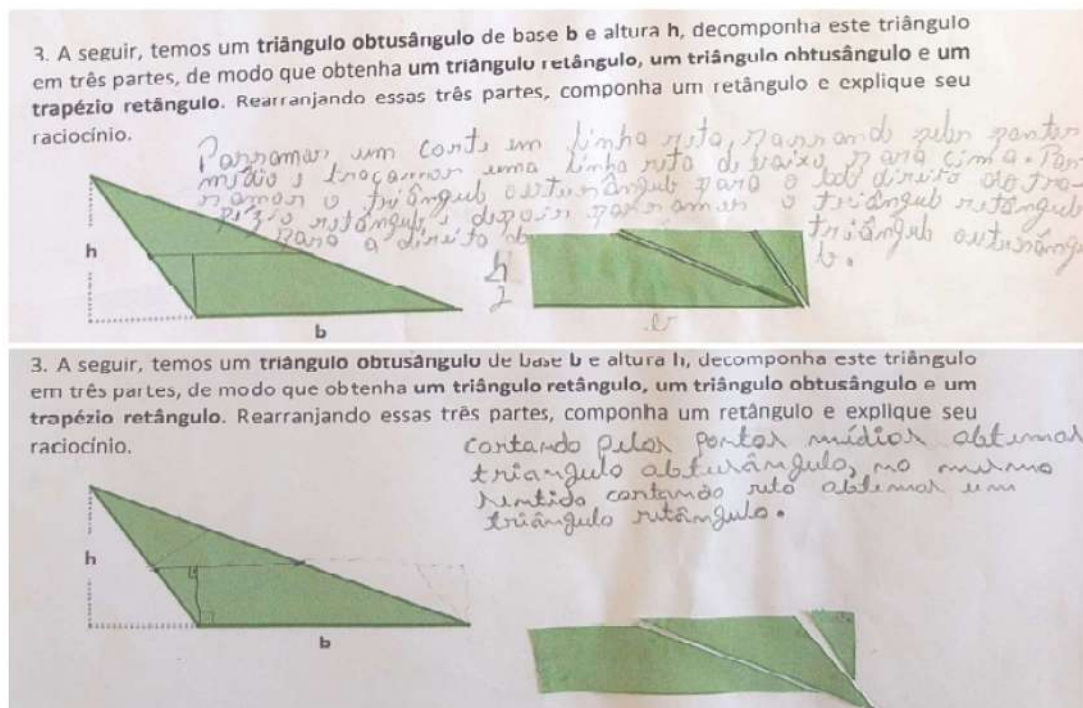 3. A seguir, temos um triângulo obtusângulo de base b e altura h, decomponha este triângulo
em três partes, de modo que obtenha um triângulo retângulo, um triângulo obtusângulo e um
trapézio retângulo. Rearranjando essas três partes, componha um retângulo e explique seu
raciocínio.
Passamos um corte em linha reta, passando pelos pontos
médio e traçamos uma linha reta de baixo para cima. Pas
samos o triângulo para o lado direito do tra-
pézio retângulo e depois passamos o triângulo retângulo
para a direita triângulo
h
h
2
b
b
3. A seguir, temos um triângulo obtusângulo de base b e altura h, decomponha este triângulo
em três partes, de modo que obtenha um triângulo retângulo, um triângulo obtusângulo e um
trapézio retângulo. Rearranjando essas três partes, componha um retângulo e explique seu
raciocínio.
cortando pelos pontos médios obtemos
triangulo obtusângulo, no mesmo
sentido cortando reto obtemos um
triângulo retângulo.
h
b